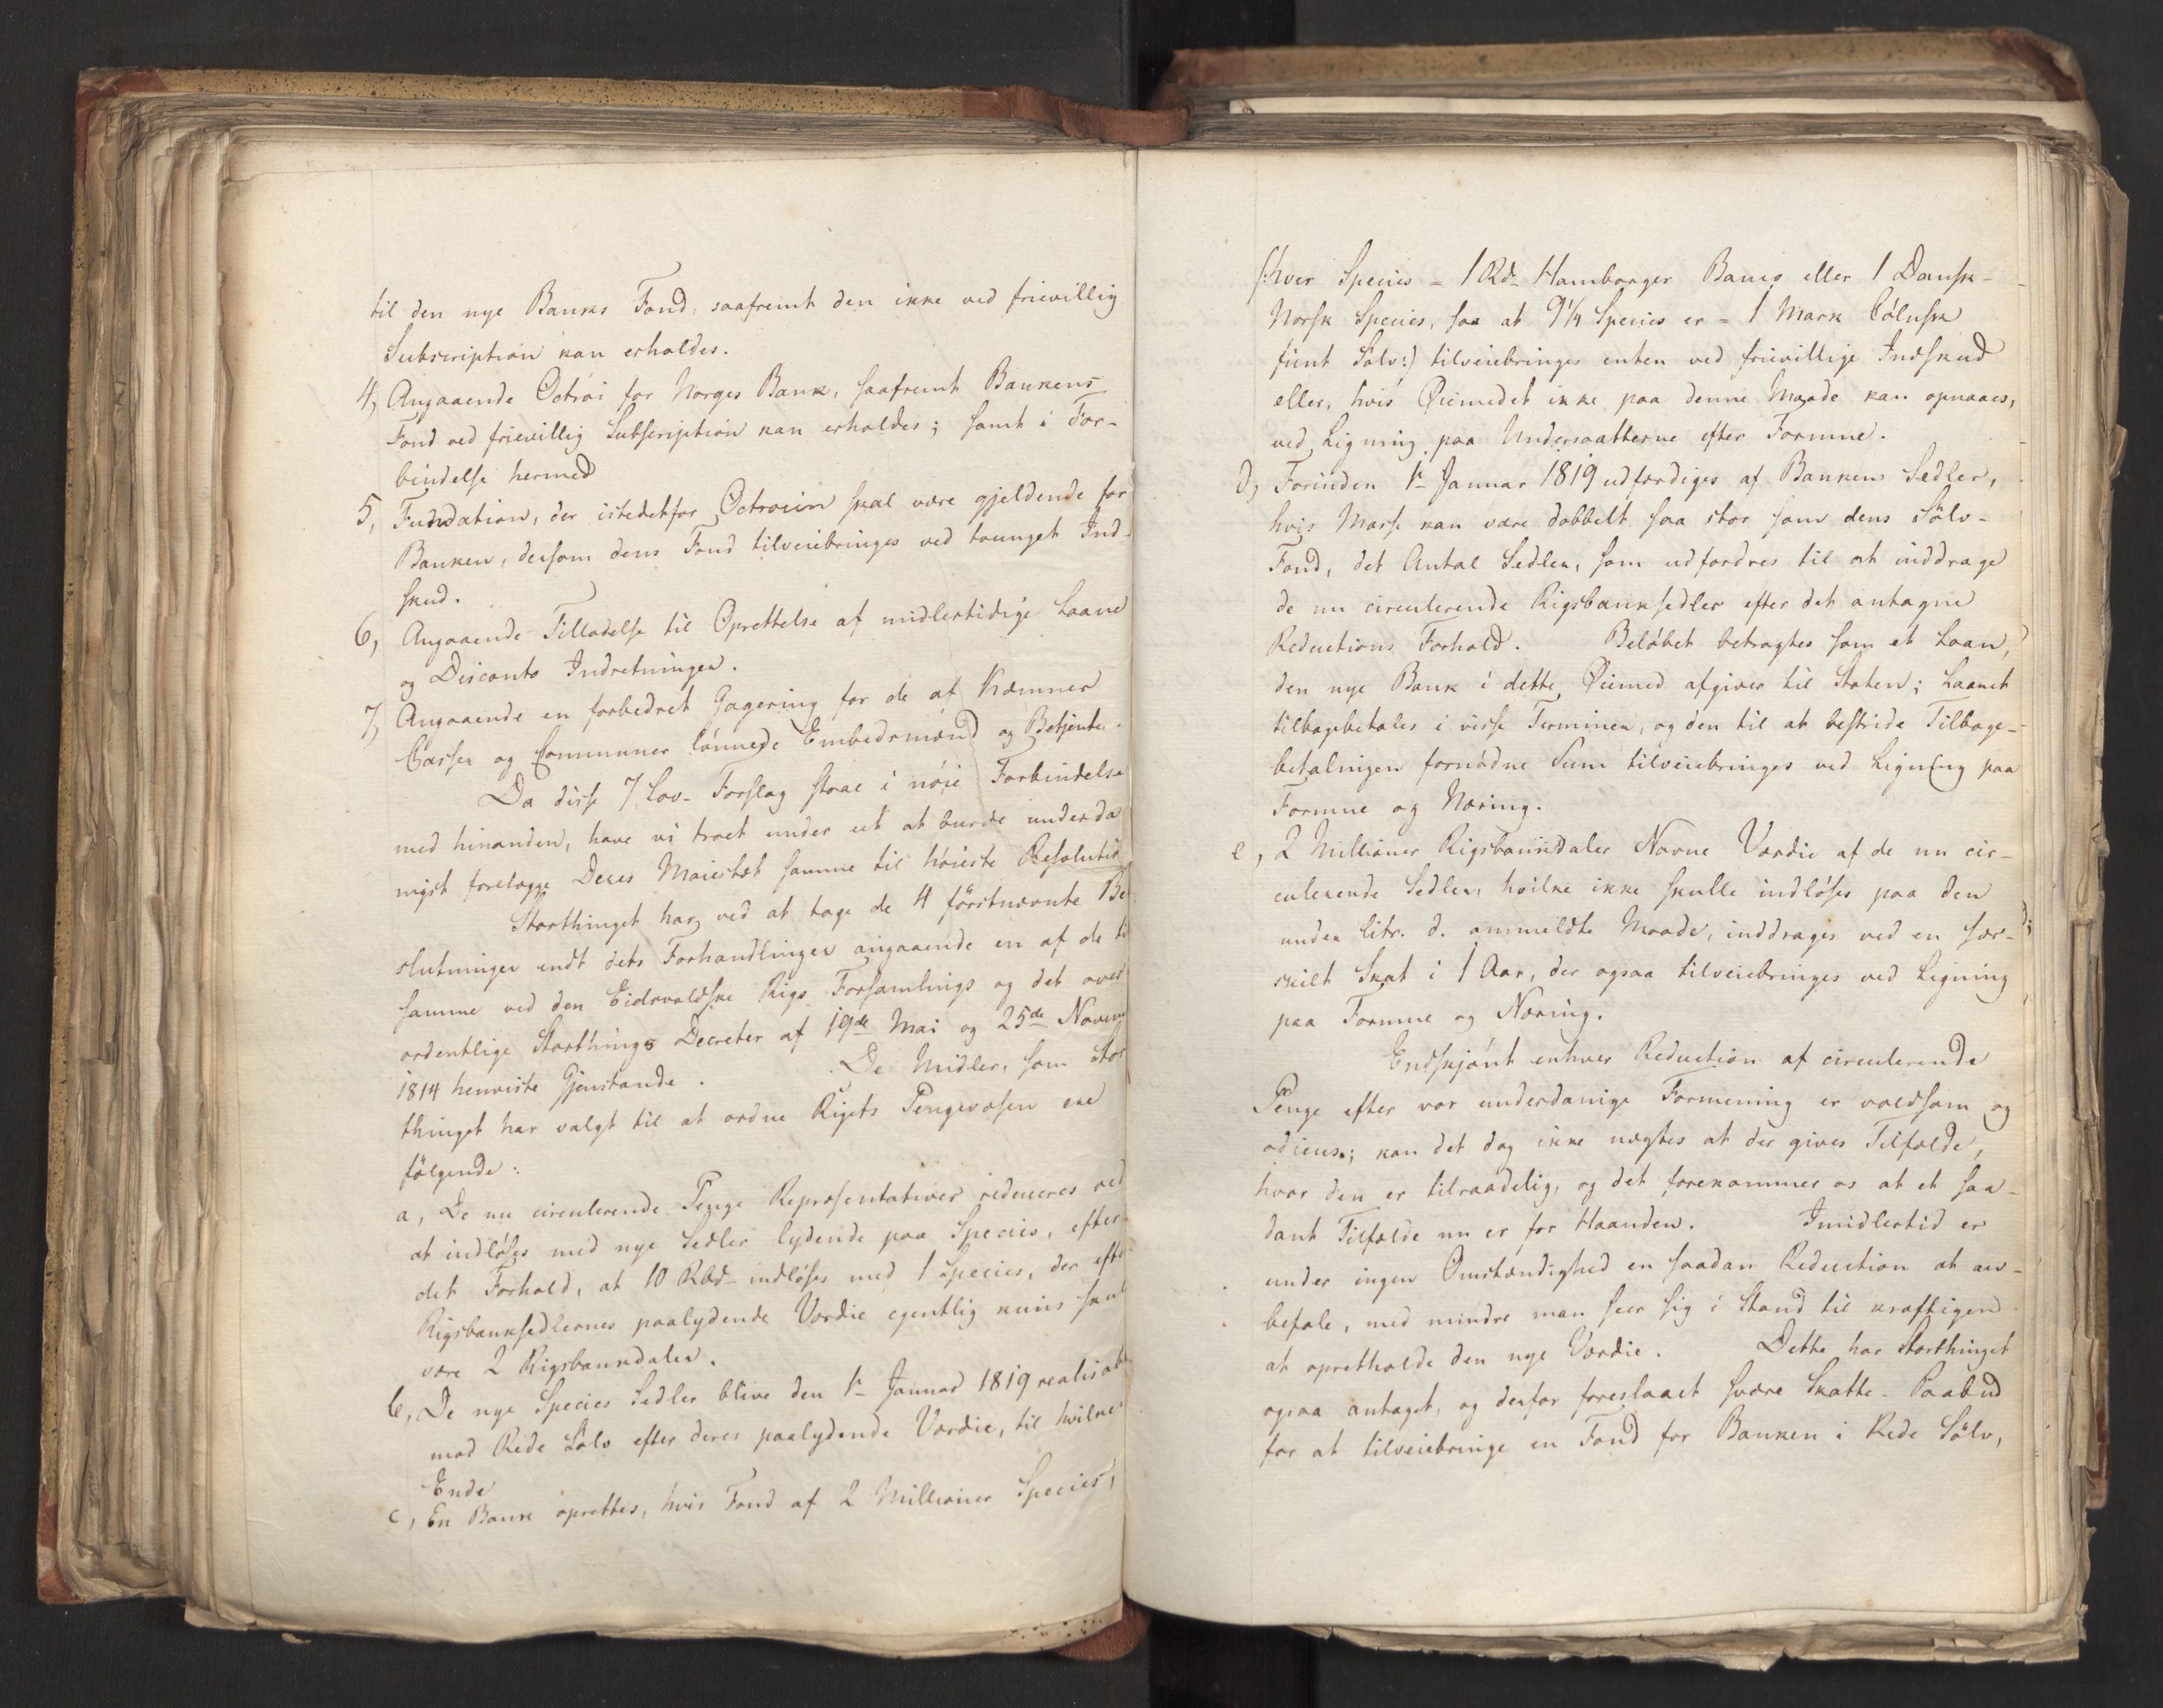 til den nye Banks Fond, saafremt den ikke ved frievillig
Subscription kan erholdes.
4, Angaaende Octroi for Norges Bank, saafremt Bankens
Fond ved frievillig Subscription kan erholdes; samt i For-
bindelse hermed
5, Fundation, der istedetfor Octroien skal være gjeldende for
Banken, dersom dens Fond tilveiebringes ved tvunget Ind-
skud.
6, Angaaende Tilladelse til Oprettelse af midlertidige Laane
og Disconto Indretninger.
7, Angaaende en forbedret Gagering for de af Kæmner
Casser og Communer lönnede Embedsmænd og Betjente.
Da disse 7 Lov-Forslag staae i nöie Forbindelse
med hinanden, have vi troet under eet at burde underda
nigst forelægge Deres Maiestæt samme til höieste Resolution
Storthinget har, ved at tage de 4 förstnævnte Be
slutninger endt dets Forhandlinger angaaende en af de til
samme ved den Eidsvoldske Rigs Forsamlings og det over
ordentlige Storthings Decreter af 19de Mai og 25de Novem
1814 henviste Gjenstande. De Midler, som Stor
thinget har valgt til at ordne Rigets Pengevæsen ere
fölgende:
a, De nu circulerende Penge Repræsentativer reduceres ved
at indlöses med nye Sedler lydende paa Species, efter
det Forhold, at 10 Rbd indlöses med 1 Species, der efter
Rigsbanksedlernes paalydende Værdie egentlig kuns skul
være 2 Rigsbankdaler.
b, De nye Species Sedler blive den 1ste Januar 1819 realisable
mod Rede Sölv efter deres paalydende Værdie, til hvilken
Ende
c, En Bank oprettes, hvis Fond af 2 Millioner Species,
(:hver Species = 1 Rd. Hamborger Banco eller 1 Dansk-
Norsk Species, saa at 9 1/4 Species er = 1 Mark Cölnsk
fiint Sölv:) tilveiebringes enten ved frievillige Indskud
eller, hvis Öiemedet ikke paa denne Maade kan opnaaes,
ved Ligning paa Undersaatterne efter Formue.
d, Forinden 1ste Januar 1819 udfærdiges af Bankens Sedler,
hvis Masse kan være dobbelt saa stor som dens Sölv-
Fond, det Antal Sedler, som udfordres til at inddrage
de nu circulerende Rigsbanksedler efter det antagne
Reductions Forhold. Belöbet betragtes som et Laan,
den nye Bank i dette Öiemed afgiver til Staten; Laanet
tilbagebetales i visse Terminer, og den til at bestride Tilbage-
betalingen fornödne Sum tilveiebringes ved Ligning paa
Formue og Næring.
e, 2 Millioner Rigsbankdaler Navne Værdie af de nu cir-
culerende Sedler, hvilke ikke skulle indlöses paa den
under litr. d. anmeldte Maade, inddrages ved en sær-
skilt Skat i 1 Aar, der ogsaa tilveiebringes ved Ligning
paa Formue og Næring.
Endskjönt enhver Reduction af circulerende
Penge efter vor underdanige Formening er voldsom og
odieus; kan det dog ikke nægtes at der gives Tilfælde,
hvor den er tilraadelig, og det forekommer os at et saa-
dant Tilfælde nu er for Haanden. Imidlertid er
under ingen Omstændighed en saadan Reduction at an-
befale, med mindre man seer sig i Stand til kraftigen
at opretholde den nye Værdie. Dette har Storthinget
ogsaa antaget, og derfor foreslaaet svære Skatte-Paabud
for at tilveiebringe en Fond for Banken i Rede Sölv,